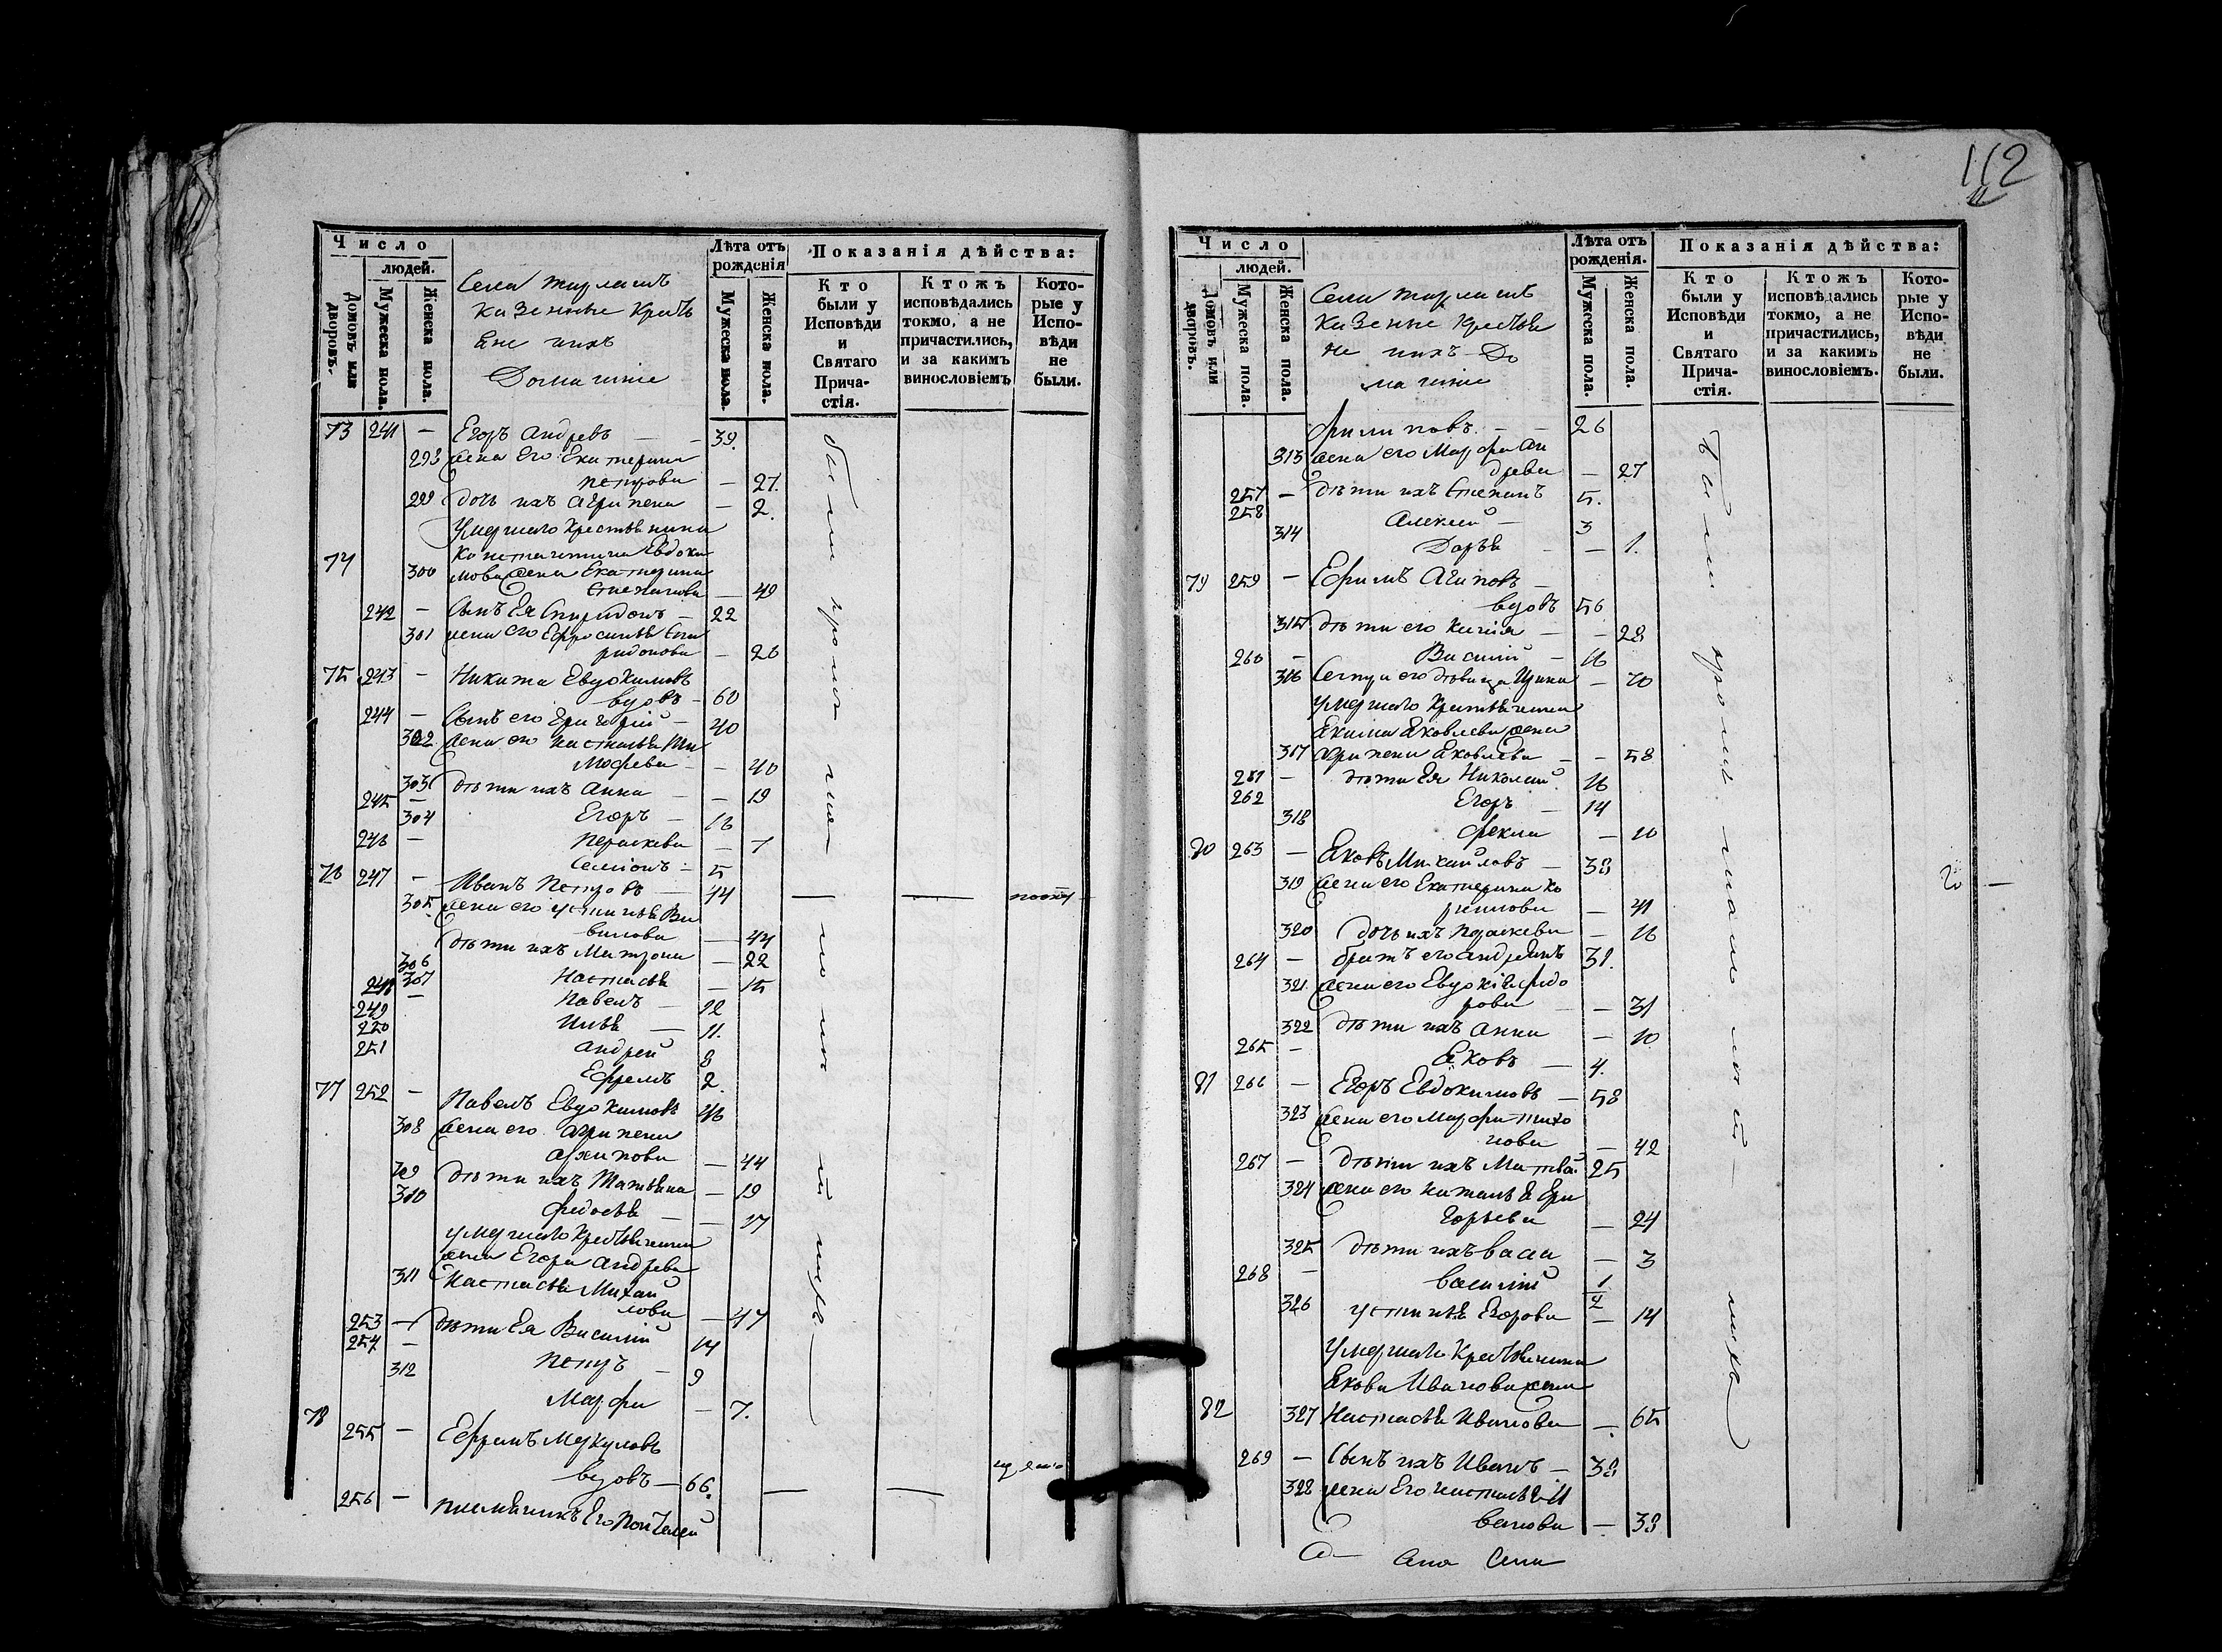 112
Число
людей.
Домовъ или дворовъ.
Мужеска пола.
Женска пола.
Села
Казенные Кресть
яне ихъ
Домашніе
Лѣта отъ
рожденія
Мужеска пола.
Женска пола.
Показанія дѣйства:
Кто
были у
Исповѣди
и
Святаго
Прича-
стія.
Ктожъ
исповѣдались
токмо, а не
причастились,
и за какимъ
винословіемъ
Кото-
рые у
Испо-
вѣди
не
были.
73 241 — Егоръ Андревъ — 39.
293 жена его Екатерина
петрова — 27.
299 дочь ихъ Агрипена — 2.
Умершаго Крестьянина
Константина Евдоки
74 300 мова жена Екатерина
Степанова — 49
242 — Сынъ Ея Спиридонъ — 22
301 жена его Ефросинья Спи
ридонова — 26
75 243 — Никита Евдокимовъ
вдовъ — 60
244 — Сынъ его Григорій — 40
302 жена его Настасья Ти
мофева — 40
303 дѣти ихъ Анна — 19
245 — Егоръ — 16
304 Пераскева — 7
246 — Семіонъ — 5
76 247 — Иванъ Петровъ — 44 — —
305 жена его Устинья Ва
вилова — 44
306 дѣти ихъ Матрона — 22
307 Настасья — 15
248 — Павелъ — 12
249 Илья — 11.
250 Андрей 8
251 Ефремъ 2.
77 252 — Павелъ Евдокимовъ 46
308 жена его Агрипена
Архипова — 44
309 дѣти ихъ Татьяна — 19
310 Федосья — 17
умершаго Крестьянина
жена Егора Андрева
311 Настасья Михай
лова — 47
253 — дѣти Ея Василій 14
254 — Петръ — 9
312 Марфа — 7.
78 255 — Ефремъ Меркуловъ
вдовъ — 66. — —
256 — племяникъ Его Понтелей
Число
людей.
Домовъ или дворовъ.
Мужеска пола.
Женска пола.
Села
Казенные Крестья
не ихъ До
машніе
Лѣта отъ
рожденія.
Мужеска пола.
Женска пола.
Показанія дѣйства:
Кто
были у
Исповѣди
и
Святаго
Прича-
стія.
Ктожъ
исповѣдались
токмо, а не
причастились,
и за какимъ
винословіемъ.
Кото-
рые у
Испо-
вѣди
не
были.
Филиповъ — 26
313 жена его Марфа Ан
древа — 27
257 — дѣти ихъ Степанъ 5.
258 Алексей — 3
314 Дарья — 1.
79 259 — Ефимъ Агаповъ —
вдовъ 56
315 дѣти его — 28
260 — Василій — 16
316 Сестра его дѣвица Ирина — 70
умершаго Крестьянина
Екима Яковлева жена
317 Агрипена Яковлева — 58
261 — дѣти Ея Николай 16
262 Егоръ — 14
318 Фекла — 10
80 263 — Яковъ Михайловъ — 38
319 жена его Екатерина Ко
рнилова — 41
320 дочь ихъ Параскева — 16
264 — братъ его Андреянъ 38.
321 жена его Евдокія Федо
рова — 31
322 дѣти ихъ Анна — 10
265 — Яковъ — 4.
81 266 — Егоръ Евдокимовъ — 58
323 жена его Марфа Тихо
нова — 42
267 — дѣти ихъ Матвей 25
324 жена его Наталья Гри
горьева — 24
325 дѣти ихъ Васа — 3
268 — Василій 1/2
326 Устинья Егорова — 14
Умершаго Крестьянина
Якова Иванова жена
82 327 Настасья Иванова — 65
269 — Сынъ ихъ Иванъ — 38
328 жена Его Настасья И
ванова — 38